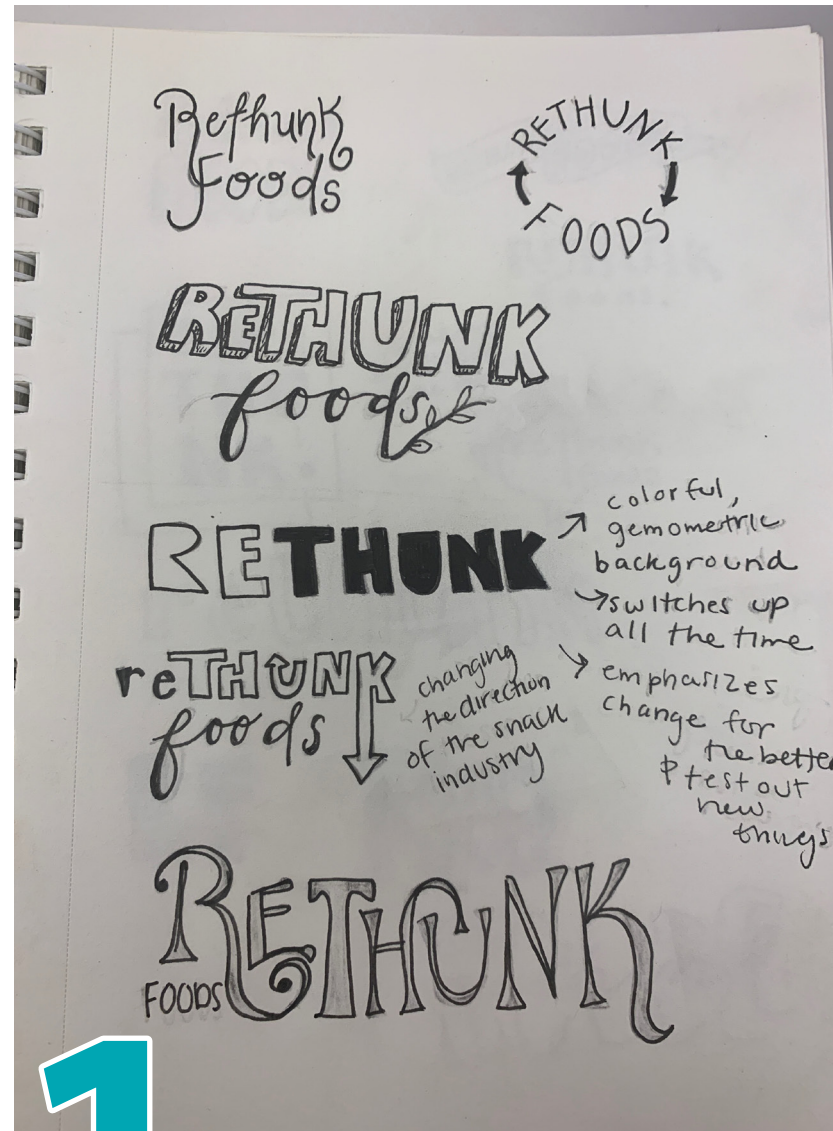 Rethunk
Foods
RETHUNK
FOODS
RETHUNK
foods
RETHUNK
colorful,
gemometric
background
switches up
all the time
emphasizes
change for
the better
& test out
new
things
reTHUNK
foods
changing
the direction
of the snack
industry
RETHUNK
FOODS
1